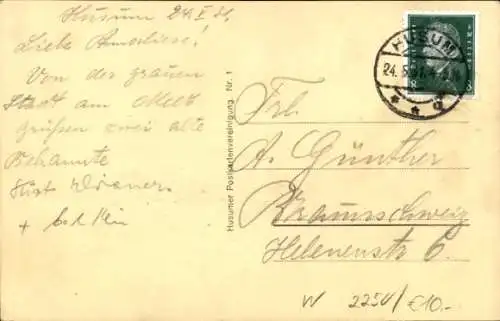 Husum 24.V.31.
Liebe Anneliese!
Von der grauen
Stadt am Meer
grüßen zwei alte
Bekannte
+
Husumer Postkartenvereinigung Nr. 1
HUSUM
24.5.31.
8
Frl.
A. Günther
Braunschweig
Helenenstr 6.
W 2254/€10-